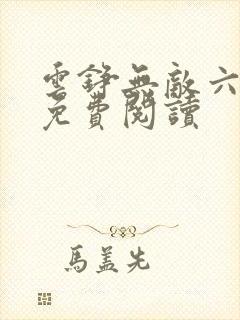 雲錚無敵六
免費閱讀
馬蓋先